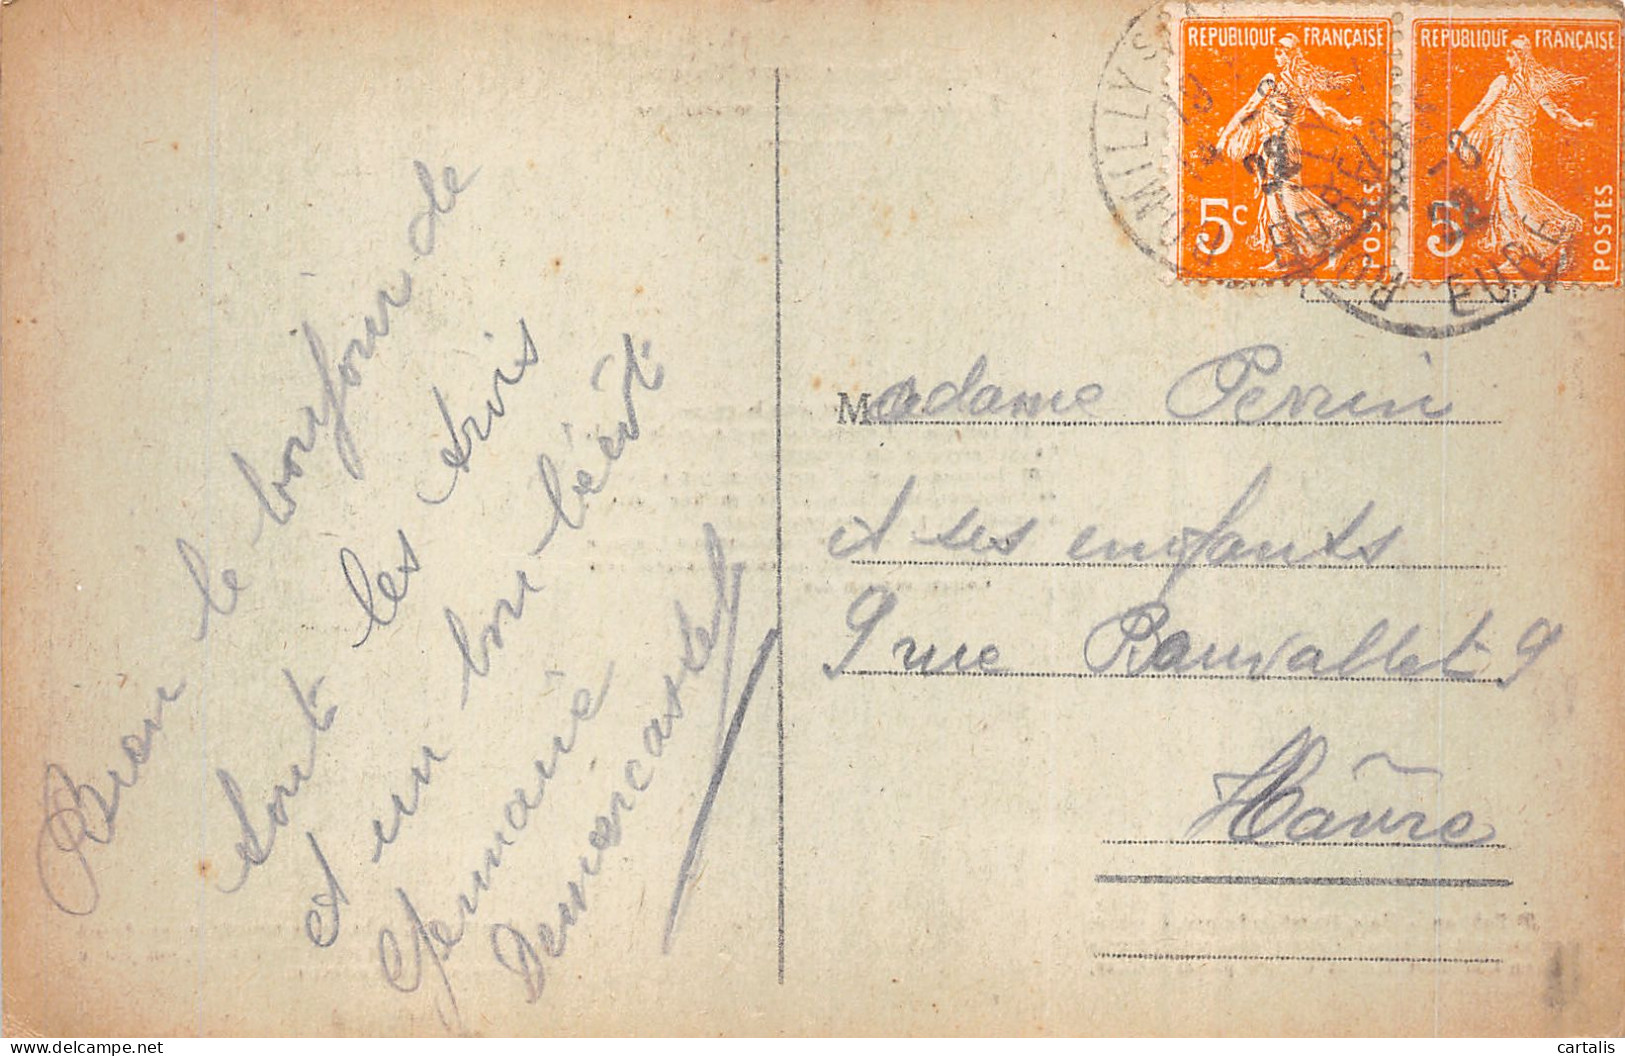 Bien le bonjour de
tout les trois
et un bon bécot
Germaine
Demarcastel
RÉPUBLIQUE FRANÇAISE
5c
POSTES
RÉPUBLIQUE FRANÇAISE
5c
POSTES
ROMILLY S
-8
22
EURE
Madame Perrin
et ses enfants
9 rue Bauvallet 9
Hâvre
cartalis